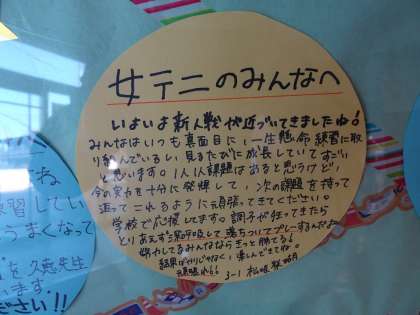 女テニのみんなへ
いよいよ新人戦が近づいてきましたね!
みんなはいつも真面目に、一生懸命練習に取
り組んでいるし、見るたびに成長していてすごい
と思います。1人1人課題はあると思うけど、
今の実力を十分に発揮して、次の課題を持って
返ってこれるように頑張ってきてください。
学校で応援してます。調子が狂ってきたら
とりあえず深呼吸して落ちついてプレーするんだよ。
努力してるみんなならきっと勝てる!
結果ばかりじゃなく、楽しんできてね。
頑張れ!! 3-1 松崎
ね
練習してい
うまくなって
久徳先生
います。
ださい!!